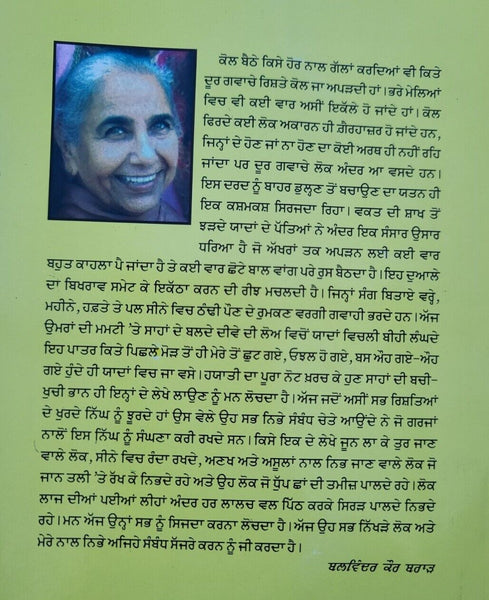 ਕੋਲ ਬੈਠੇ ਕਿਸੇ ਹੋਰ ਨਾਲ ਗੱਲਾਂ ਕਰਦਿਆਂ ਵੀ ਕਿਤੇ
ਦੂਰ ਗਵਾਚੇ ਰਿਸ਼ਤੇ ਕੋਲ ਜਾ ਅਪੜਦੀ ਹਾਂ। ਭਰੇ ਮੇਲਿਆਂ
ਵਿਚ ਵੀ ਕਈ ਵਾਰ ਅਸੀਂ ਇਕੱਲੇ ਹੋ ਜਾਂਦੇ ਹਾਂ। ਕੋਲ
ਫਿਰਦੇ ਕਈ ਲੋਕ ਅਕਾਰਨ ਹੀ ਗ਼ੈਰਹਾਜ਼ਰ ਹੋ ਜਾਂਦੇ ਹਨ,
ਜਿਨ੍ਹਾਂ ਦੇ ਹੋਣ ਜਾਂ ਨਾ ਹੋਣ ਦਾ ਕੋਈ ਅਰਥ ਹੀ ਨਹੀਂ ਰਹਿ
ਜਾਂਦਾ ਪਰ ਦੂਰ ਗਵਾਚੇ ਲੋਕ ਅੰਦਰ ਆ ਵਸਦੇ ਹਨ।
ਇਸ ਦਰਦ ਨੂੰ ਬਾਹਰ ਡੁਲ੍ਹਣ ਤੋਂ ਬਚਾਉਣ ਦਾ ਯਤਨ ਹੀ
ਇਕ ਕਸ਼ਮਕਸ਼ ਸਿਰਜਦਾ ਰਿਹਾ। ਵਕਤ ਦੀ ਸ਼ਾਖ ਤੋਂ
ਝੜਦੇ ਯਾਦਾਂ ਦੇ ਪੱਤਿਆਂ ਨੇ ਅੰਦਰ ਇਕ ਸੰਸਾਰ ਉਸਾਰ
ਧਰਿਆ ਹੈ ਜੋ ਅੱਖਰਾਂ ਤਕ ਅਪੜਨ ਲਈ ਕਈ ਵਾਰ
ਬਹੁਤ ਕਾਹਲਾ ਪੈ ਜਾਂਦਾ ਹੈ ਤੇ ਕਈ ਵਾਰ ਛੋਟੇ ਬਾਲ ਵਾਂਗ ਪਰੇ ਰੁਸ ਬੈਠਦਾ ਹੈ। ਇਹ ਦੁਆਲੇ
ਦਾ ਬਿਖਰਾਵ ਸਮੇਟ ਕੇ ਇਕੱਠਾ ਕਰਨ ਦੀ ਰੀਝ ਮਚਲਦੀ ਹੈ। ਜਿਨ੍ਹਾਂ ਸੰਗ ਬਿਤਾਏ ਵਰ੍ਹੇ,
ਮਹੀਨੇ, ਹਫ਼ਤੇ ਤੇ ਪਲ ਸੀਨੇ ਵਿਚ ਠੰਢੀ ਪੌਣ ਦੇ ਰੁਮਕਣ ਵਰਗੀ ਗਵਾਹੀ ਭਰਦੇ ਹਨ। ਅੱਜ
ਉਮਰਾਂ ਦੀ ਮਮਟੀ 'ਤੇ ਸਾਹਾਂ ਦੇ ਬਲਦੇ ਦੀਵੇ ਦੀ ਲੋਅ ਵਿਚੋਂ ਯਾਦਾਂ ਵਿਚਲੀ ਬੀਹੀ ਲੰਘਦੇ
ਇਹ ਪਾਤਰ ਕਿਤੇ ਪਿਛਲੇ ਮੋੜ ਤੋਂ ਹੀ ਮੇਰੇ ਤੋਂ ਛੁਟ ਗਏ, ਓਝਲ ਹੋ ਗਏ, ਬਸ ਔਹ ਗਏ-ਔਹ
ਗਏ ਹੁੰਦੇ ਹੀ ਯਾਦਾਂ ਵਿਚ ਜਾ ਵਸੇ। ਹਯਾਤੀ ਦਾ ਪੂਰਾ ਨੋਟ ਖ਼ਰਚ ਕੇ ਹੁਣ ਸਾਹਾਂ ਦੀ ਬਚੀ-
ਖੁਚੀ ਭਾਨ ਹੀ ਇਨ੍ਹਾਂ ਦੇ ਲੇਖੇ ਲਾਉਣ ਨੂੰ ਮਨ ਲੋਚਦਾ ਹੈ। ਅੱਜ ਜਦੋਂ ਅਸੀਂ ਸਭ ਰਿਸ਼ਤਿਆਂ
ਦੇ ਖੁਰਦੇ ਨਿੱਘ ਨੂੰ ਝੂਰਦੇ ਹਾਂ ਉਸ ਵੇਲੇ ਉਹ ਸਭ ਨਿਭੇ ਸੰਬੰਧ ਚੇਤੇ ਆਉਂਦੇ ਨੇ ਜੋ ਗਰਜਾਂ
ਨਾਲੋਂ ਇਸ ਨਿੱਘ ਨੂੰ ਸੰਘਣਾ ਕਰੀ ਰਖਦੇ ਸਨ। ਕਿਸੇ ਇਕ ਦੇ ਲੇਖੇ ਜੂਨ ਲਾ ਕੇ ਤੁਰ ਜਾਣ
ਵਾਲੇ ਲੋਕ, ਸੀਨੇ ਵਿਚ ਰੰਦਾ ਰਖਦੇ, ਅਣਖ ਅਤੇ ਅਸੂਲਾਂ ਨਾਲ ਨਿਭ ਜਾਣ ਵਾਲੇ ਲੋਕ ਜੋ
ਜਾਨ ਤਲੀ 'ਤੇ ਰੱਖ ਕੇ ਨਿਭਦੇ ਰਹੇ ਅਤੇ ਉਹ ਲੋਕ ਜੋ ਧੁੱਪ ਛਾਂ ਦੀ ਤਮੀਜ਼ ਪਾਲਦੇ ਰਹੇ। ਲੋਕ
ਲਾਜ ਦੀਆਂ ਪਈਆਂ ਲੀਹਾਂ ਅੰਦਰ ਹਰ ਲਾਲਚ ਵਲ ਪਿੱਠ ਕਰਕੇ ਸਿਰੜ ਪਾਲਦੇ ਨਿਭਦੇ
ਰਹੇ। ਮਨ ਅੱਜ ਉਨ੍ਹਾਂ ਸਭ ਨੂੰ ਸਿਜਦਾ ਕਰਨਾ ਲੋਚਦਾ ਹੈ। ਅੱਜ ਉਹ ਸਭ ਨਿੱਖੜੇ ਲੋਕ ਅਤੇ
ਮੇਰੇ ਨਾਲ ਨਿਭੇ ਅਜਿਹੇ ਸੰਬੰਧ ਸੱਜਰੇ ਕਰਨ ਨੂੰ ਜੀ ਕਰਦਾ ਹੈ।
ਬਲਵਿੰਦਰ ਕੌਰ ਬਰਾੜ